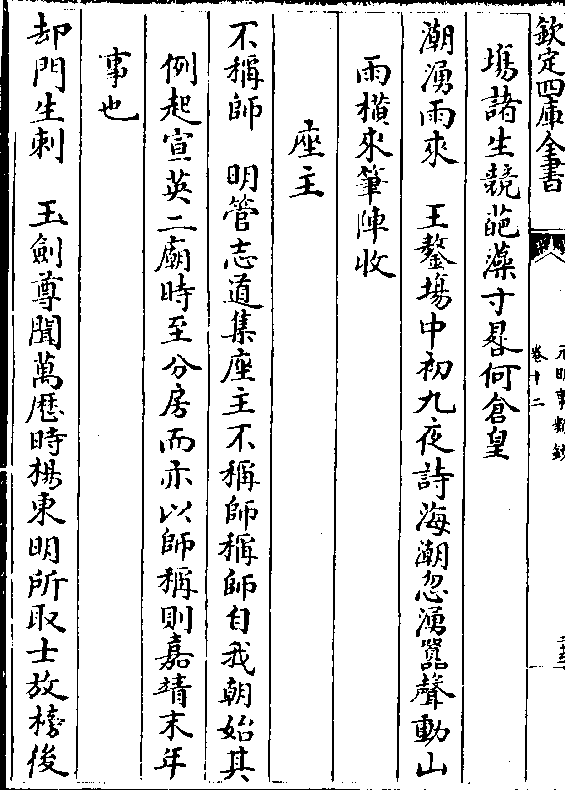 欽定四庫全書
元明事類鈔
卷十二
場諸生競葩藻寸晷何倉皇
潮湧雨來　王鏊場中初九夜詩海潮忽湧嚣聲動山
雨橫來筆陣收
座主
不稱師　明管志道集座主不稱師稱師自我朝始其
例起宣英二廟時至分房而亦以師稱則嘉靖末年
事也
却門生刺　玉劍尊聞萬歴時楊東明所取士放榜後